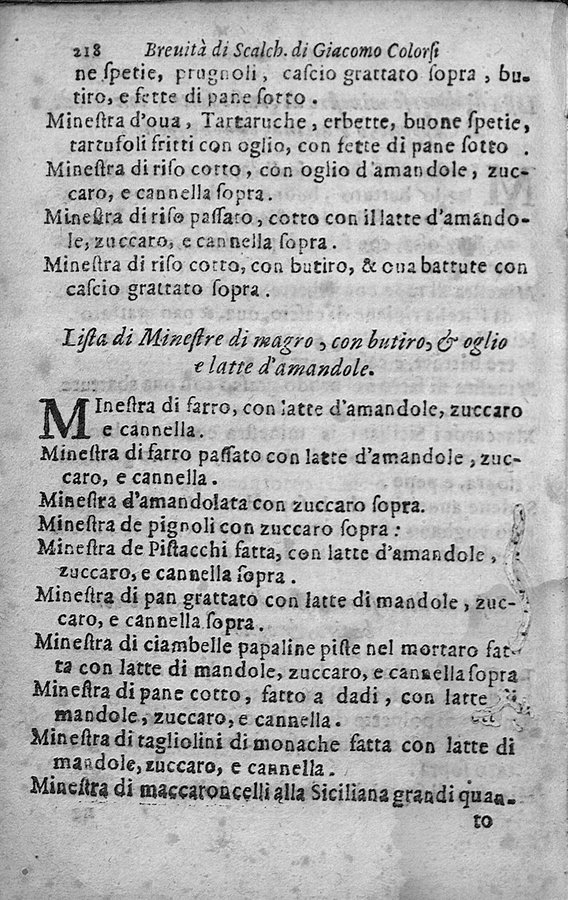 218 Breuità di Scalch. di Giacomo Colorſi
ne ſpetie, prugnoli, caſcio grattato ſopra, bu-
tiro, e fette di pane ſotto.
Mineſtra d'oua, Tartaruche, erbette, buone ſpetie,
tartufoli fritti con oglio, con fette di pane ſotto.
Mineſtra di riſo cotto, con oglio d'amandole, zuc-
caro, e cannella ſopra.
Mineſtra di riſo paſſato, cotto con il latte d'amando-
le, zuccaro, e cannella ſopra.
Mineſtra di riſo cotto, con butiro, & oua battute con
caſcio grattato ſopra.
Liſta di Mineſtre di magro, con butiro, & oglio
e latte d'amandole.
MIneſtra di farro, con latte d'amandole, zuccaro
e cannella.
Mineſtra di farro paſſato con latte d'amandole, zuc-
caro, e cannella.
Mineſtra d'amandolata con zuccaro ſopra.
Mineſtra de pignoli con zuccaro ſopra:
Mineſtra de Piſtacchi fatta, con latte d'amandole,
zuccaro, e cannella ſopra.
Mineſtra di pan grattato con latte di mandole, zuc-
caro, e cannella ſopra.
Mineſtra di ciambelle papaline piſte nel mortaro fat-
ta con latte di mandole, zuccaro, e cannella ſopra
Mineſtra di pane cotto, fatto a dadi, con latte di
mandole, zuccaro, e cannella.
Mineſtra di tagliolini di monache fatta con latte di
mandole, zuccaro, e cannella.
Mineſtra di maccaroncelli alla Siciliana grandi quan-
to